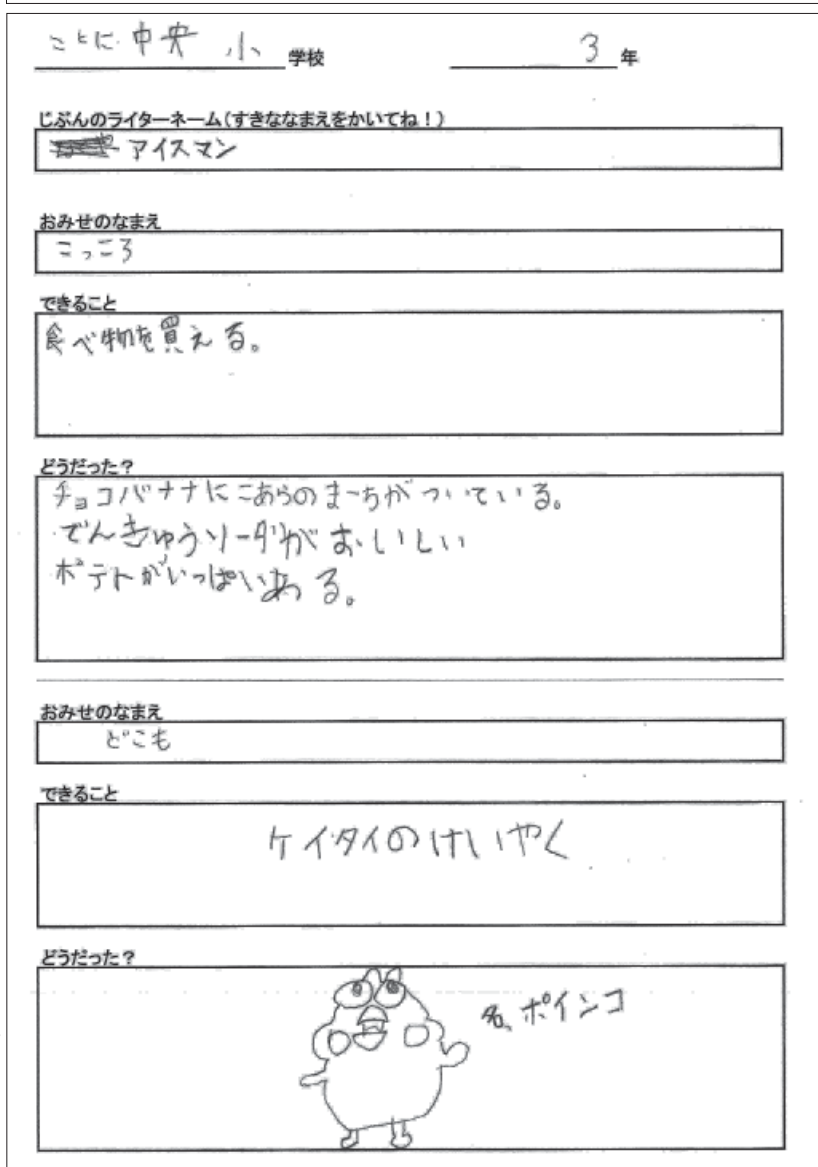 ことに中央小学校 3年
じぶんのライターネーム(すきななまえをかいてね!)
アイスマン
おみせのなまえ
こっころ
できること
食べ物を買える。
どうだった?
チョコバナナにこあらのまーちがついている。
でんきゅうソーダがおいしい
ポテトがいっぱいある。
おみせのなまえ
どこも
できること
ケイタイのけいやく
どうだった?
名、ポインコ